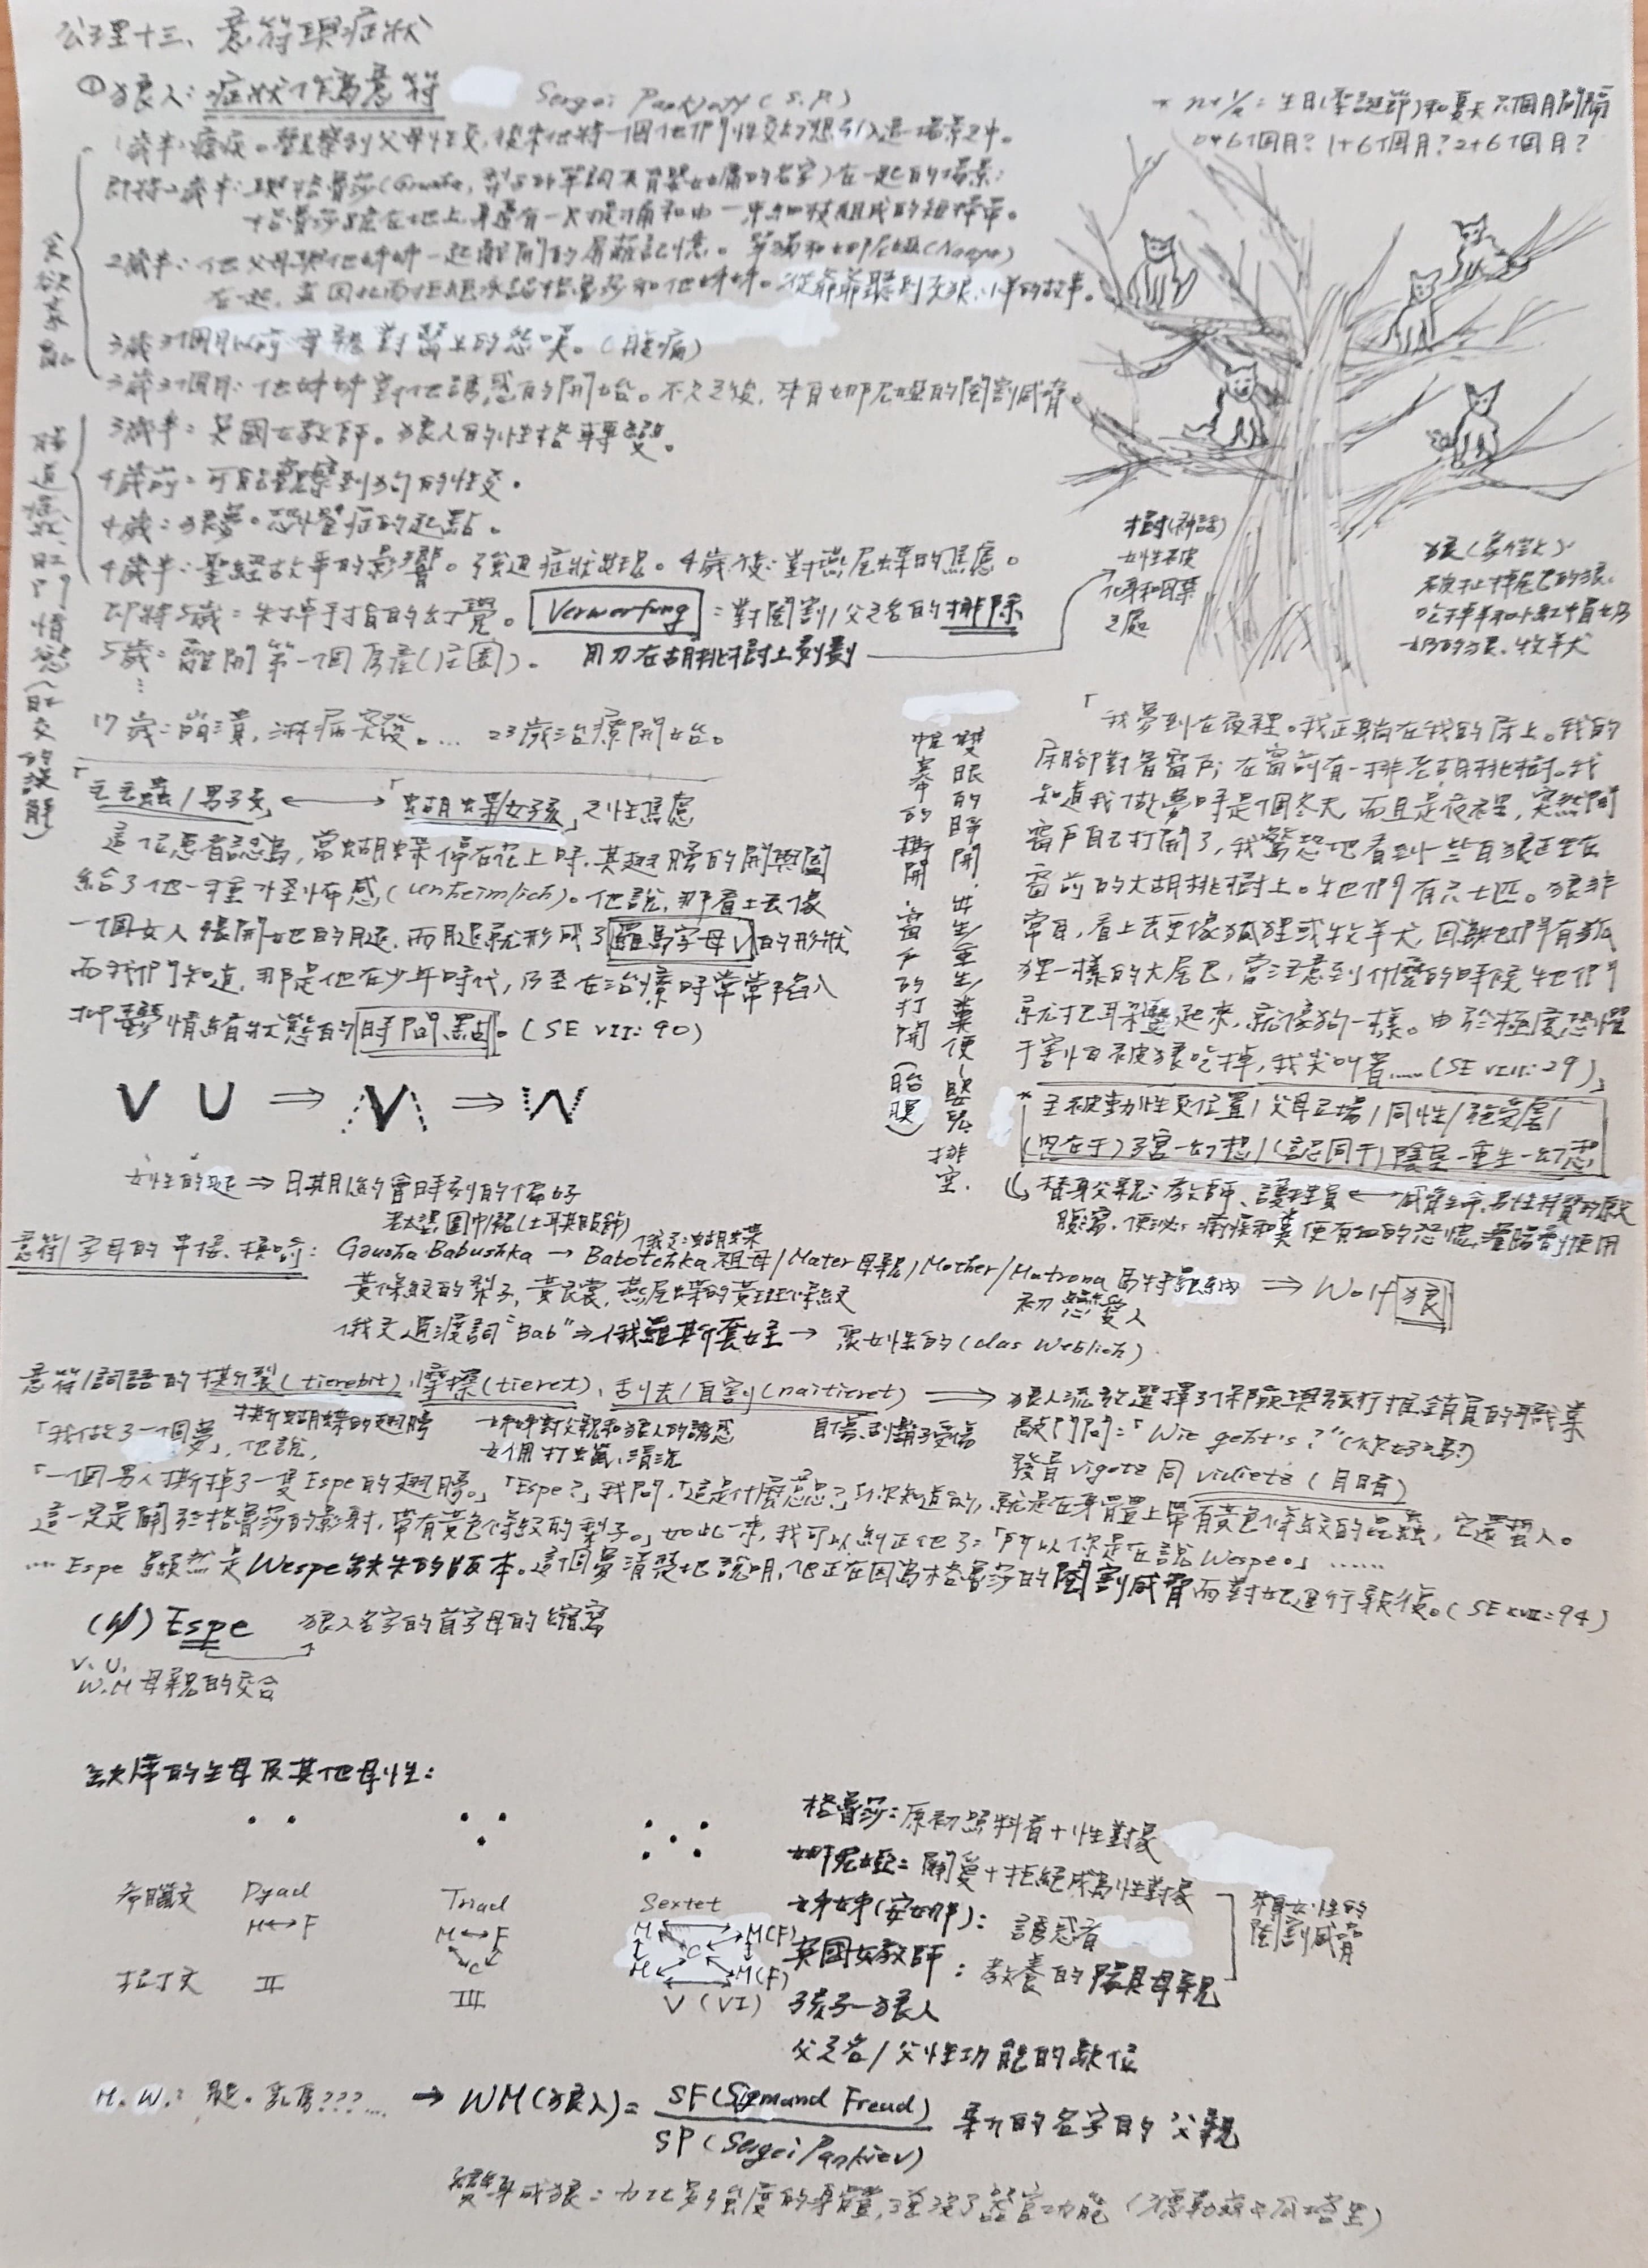 公理十三、意符與症狀
①狼人：症狀作為意符
Sergei (S.P.)
* n+1/2 = 生日(聖誕節)和夏天 六個月間隔
0+6個月? 1+6個月? 2+6個月?
1歲半：瘧疾。觀察到父母性交，後來他將一個他們性交的幻想引入這一場景之中。
即將2歲半：與格魯莎(Grusha,
格魯莎跪在地上，身邊有一水桶和由一束細枝組成的短掃帚。
2歲半：他父母與他姊姊一起離開的屏蔽記憶。單獨和娜尼婭(Nanya)
在一起，並因此而拒絕承認格魯莎和他姊姊。從爺爺聽到灰狼、小羊的故事。
3歲3個月以前：母親對醫生的怨嘆。(腹痛)
3歲3個月：他姊姊對他誘惑的開始。不久之後，來自娜尼婭的閹割威脅。
3歲半：英國女教師。狼人的性格轉變。
4歲前：可能觀察到狗的性交。
4歲：狼夢。恐懼症的起點。
4歲半：聖經故事的影響。強迫症狀出現。4歲後：對燕尾蝶的焦慮。
即將5歲：失掉手指的幻覺。Verwerfung = 對閹割/父之名的排除
5歲：離開第一個房產(庄園)。 用刀在胡桃樹上刻劃
17歲：崩潰，淋病突發。… 23歲治療開始。
樹(神話)
女性被
化身和囚禁
之處
狼(家徽)
被扯掉尾巴的狼、
吃掉羊和小紅帽奶
奶的狼、牧羊犬
「毛毛蟲/男孩」⟷「蝴蝶/女孩」之性焦慮
這位患者認為，當蝴蝶停在花上時，其翅膀的開與闔
給了他一種怪怖感(unheimlich)。他說，那看上去像
一個女人張開她的腿，而腿就形成了羅馬字母V的形狀
而我們知道，那是他在少年時代，乃至在治療時常常陷入
抑鬱情緒狀態的時間點。(SE VII: 90)
V U ⇒ V ⇒ W
女性的腿 ⇒ 日期、約會時刻的偏好
雙眼的睜開．出生/重生/糞便、嬰孩排空．
帷幕的撕開．窗戶的打開(胎膜)
「我夢到在夜裡。我正躺在我的床上。我的
床腳對著窗戶；在窗前有一排老胡桃樹。我
知道我做夢時是個冬天，而且是夜裡，突然間
窗戶自己打開了，我驚恐地看到一些白狼正坐在
窗前的大胡桃樹上。牠們有六七匹。狼非
常白，看上去更像狐狸或牧羊犬，因為牠們有狐
狸一樣的大尾巴，當注意到什麼的時候牠們
就把耳朵豎起來，就像狗一樣。由於極度恐懼
于害怕被狼吃掉，我尖叫著……(SE VII: 29)」
* 主被動性交位置/父母立場/同性/施受虐/
(内在于)子宮一幻想/(認同于)陰莖一重生一幻想
替身父親：教師、護理員
腹瀉、便祕、瘧疾和糞便有血的恐懼，灌腸劑使用
老太婆 圍巾/裙(土耳其服飾)
俄文：蝴蝶
意符/字母的串接、換喻： Grusha Babushka → Babotchka 祖母/Mater 母親/Mother/Matrona ⇒ Wolf 狼
初戀愛人
黃條紋的梨子、黃衣裳、燕尾蝶的黃斑條紋
俄文過渡詞“Bab” ⇒ 俄羅斯套娃 → 眾女性的(das Weblich)
意符/詞語的撕裂(tierebit)、摩擦(tieret)、刮去/自割(naitieret) ⟹ 狼人流放選擇了保險與旅行推銷員的職業
撕蝴蝶的翅膀
姊姊對父親和狼人的誘惑
女僕打蠟、清洗
敲門問：“Wie geht's?”(你好嗎?)
發音vigotz 同 vidietz (目睹)
「我做了一個夢」，他說，
「一個男人撕掉了一隻Espe的翅膀。」「Espe?」我問，「這是什麼意思?」「你知道的，就是在身體上帶有黃色條紋的昆蟲，它還螫人。
這一定是關於格魯莎的影射，帶有黃色條紋的梨子。」如此一來，我可以糾正他了：「所以你是在說Wespe。」……
…… Espe顯然是Wespe缺失的版本。這個夢清楚地說明，他正在因為格魯莎的閹割威脅而對她進行報復。(SE XVII: 94)
(W) Espe 狼人名字的首字母的縮寫
V. U.
W. M 母親的交合
缺席的生母及其他母性：
格魯莎：原初照料者+性對象
娜尼婭：關愛+拒絕成為性對象
姊姊(安娜)：誘惑者
英國女教師：教養的陽具母親
來自女性的
閹割威脅
孩子一狼人
父之名/父性功能的缺位
希臘文 Dyad Triad Sextet
M⟷F M⟷F C M M(F) C M M(F)
拉丁文 II III V (VI)
M. W.: 腿。乳房???... → WM(狼人) = SF(Sigmund Freud) / SP(Sergei Pankiev)
變身成狼：力比多強度的身體，(德勒茲&瓜塔里)